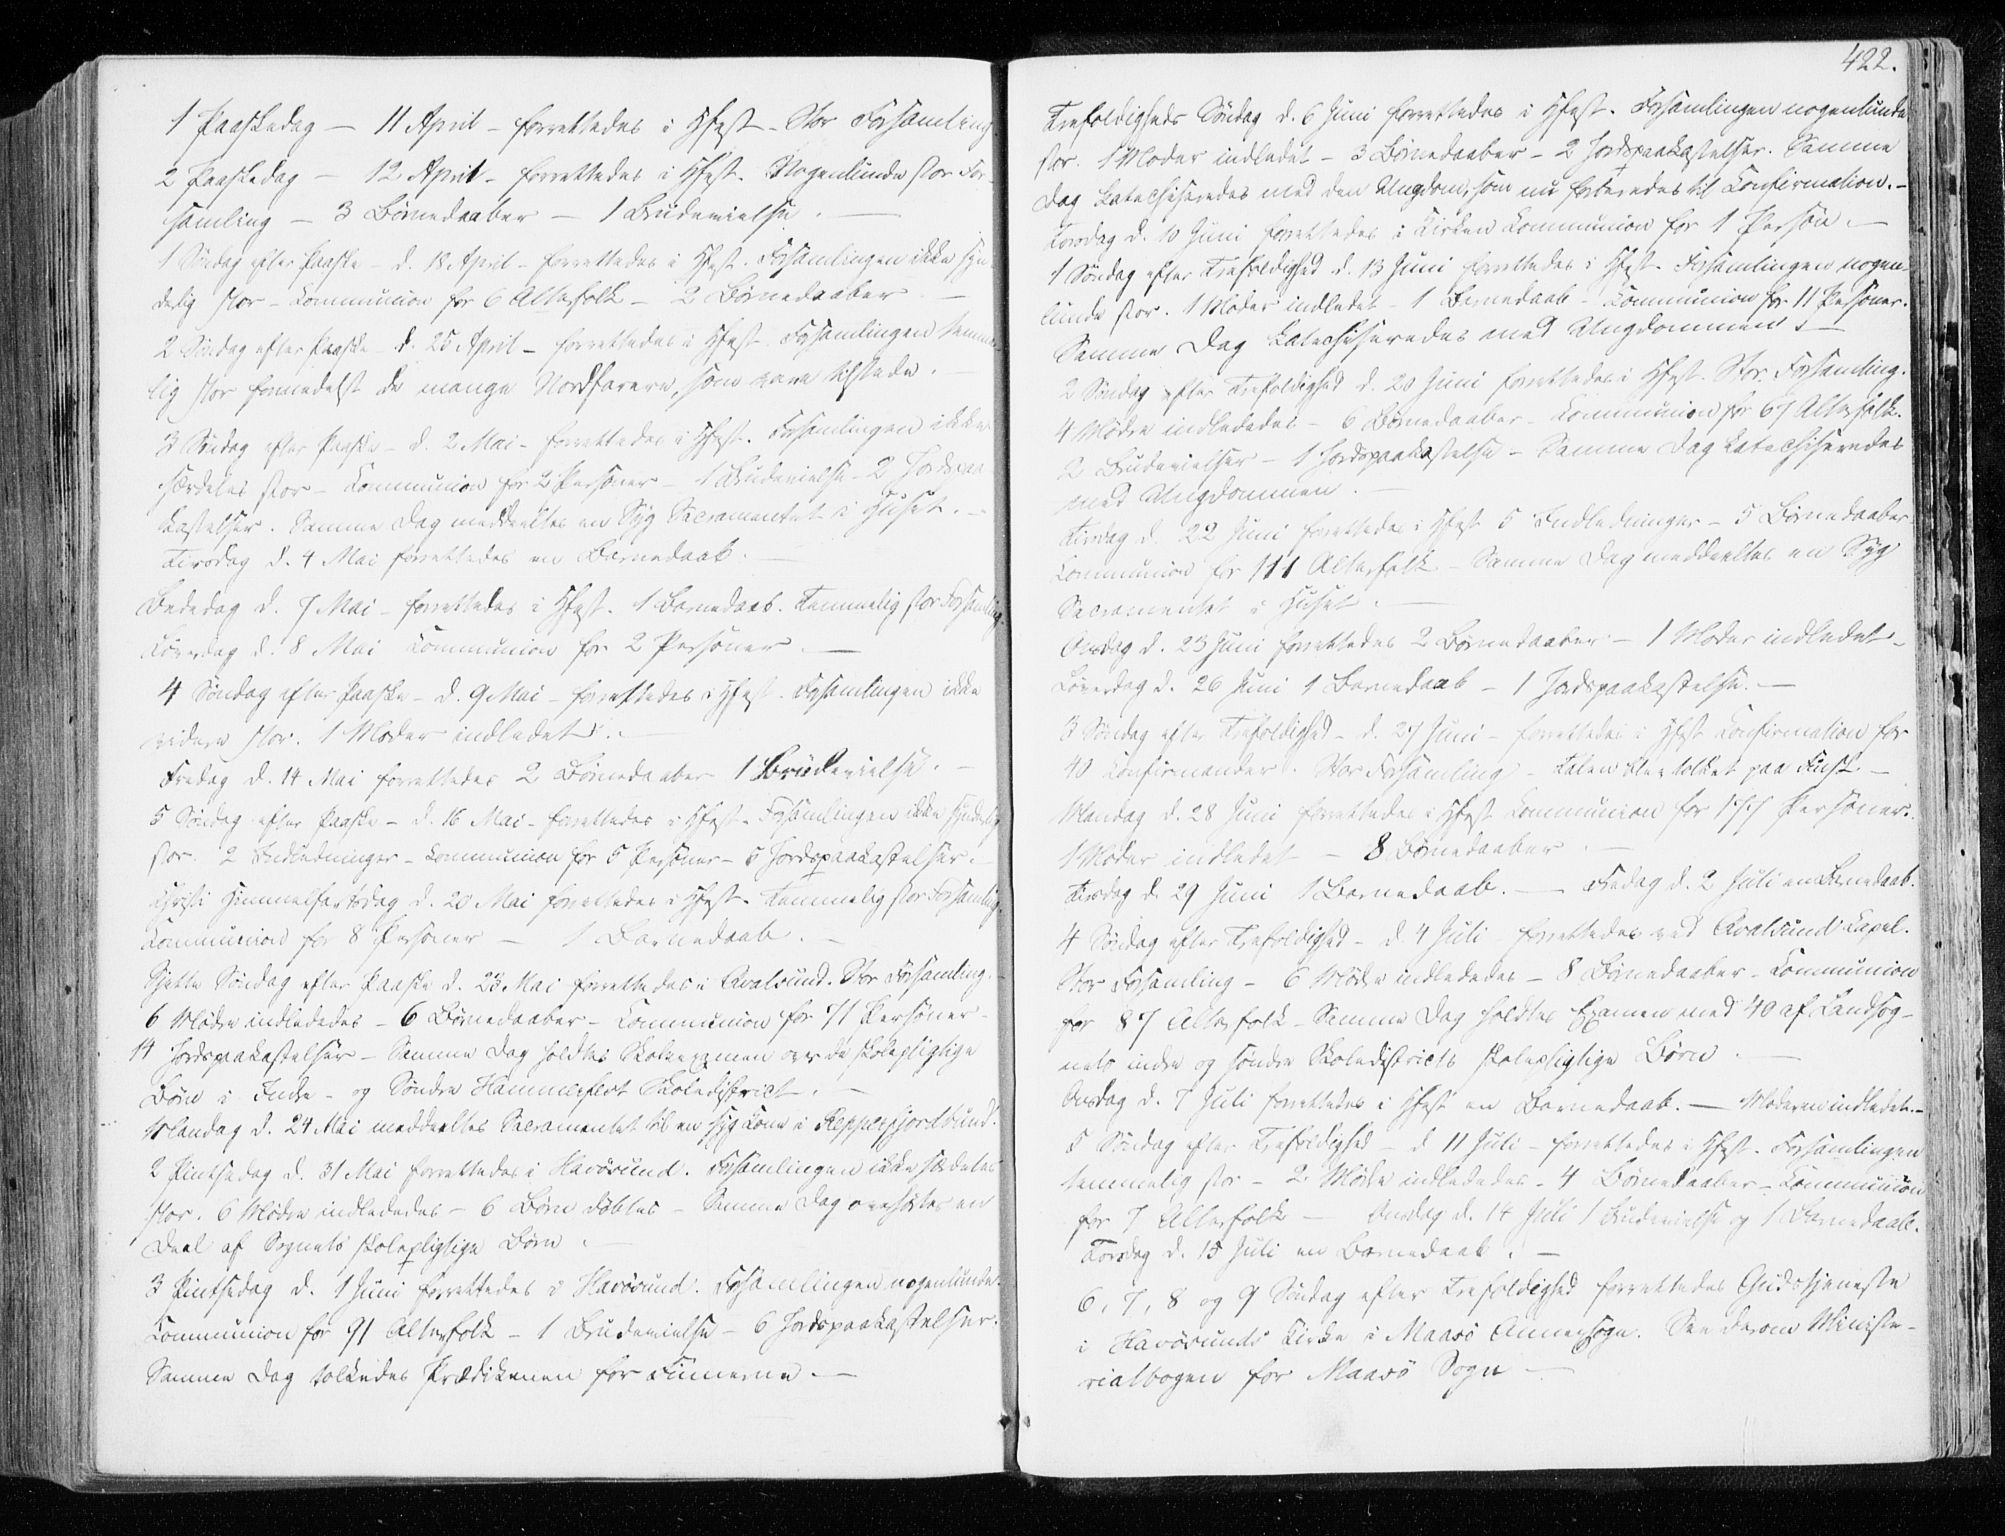 1 Paaskedag – 11 April – forrettedes i Hfest – Stor Forsamling.
2 Paaskedag – 12 April – forrettedes i Hfest. Nogenlunde stor For-
samling – 3 Børnedaaber – 1 Brudevielse. –
1 Søndag efter Paaske – d. 18 April – forrettedes i Hfest. Forsamlingen ikke syn-
derlig stor – Communion for 6 Altersfolk – 2 Børnedaaber. –
2 Søndag efter Paaske – d. 25 April – forrettedes i Hfest. Forsamlingen temme-
lig stor formedelst de mange Nordfarere, som vare tilstede. –
3 Søndag efter Paaske – d. 2 Mai – forrettedes i Hfest. Forsamlingen ikke
særdeles stor – Communion for 2 Personer – 1 Brudevielse – 2 Jordspaa-
kastelser. Samme Dag meddeeltes en Syg Sacramentet i Huset. –
Tirsdag d. 4 Mai forrettedes en Barnedaab. –
Bededag d. 7 Mai – forrettedes i Hfest. 1 Barnedaab. Temmelig stor Forsamling.
Løverdag d. 8 Mai Communion for 2 Personer. –
4 Søndag efter Paaske – d. 9 Mai – forrettedes i Hfest. Forsamlingen ikke
videre stor. 1 Moder indledet. –
Fredag d. 14 Mai forrettedes 2 Børnedaaber 1 Brudevielse. –
5 Søndag efter Paaske – d. 16 Mai – forrettedes i Hfest. Forsamlingen ikke synderlig
stor. 2 Indledninger – Communion for 5 Personer – 6 Jordspaakastelser. –
Christi Himmelfartsdag d. 20 Mai forrettedes i Hfest. Temmelig stor Forsamling.
Communion for 8 Personer – 1 Barnedaab. –
Sjette Søndag efter Paaske d. 23 Mai forrettedes i Qvalsund. Stor Forsamling. –
6 Mødre indlededes – 6 Børnedaaber – Communion for 71 Personer –
14 Jordspaakastelser – Samme Dag holdtes Skoleexamen over de skolepligtige
Børn i Indre – og Søndre Hammerfest Skoledistrict. –
Mandag d. 24 Mai meddeeltes Sacramentet til en syg Kone i Repperfjordbund.
2 Pintsedag d. 31 Mai forrettedes i Havøsund. Forsamlingen ikke særdeles
stor. 6 Mødre indlededes – 6 Børn døbtes – Samme Dag overhørtes en
Deel af Sognets skolepligtige Børn. –
3 Pintsedag d. 1 Juni forrettedes i Havøsund. Forsamlingen nogenlunde.
Communion for 91 Altersfolk – 1 Brudevielse – 6 Jordspaakastelser.
Samme Dag tolkedes Prædikenen for Finnerne. –
422.
Trefoldigheds Søndag d. 6 Juni forrettedes i Hfest. Forsamlingen nogenlunde
stor. 1 Moder indledet – 3 Børnedaaber – 2 Jordspaakastelser. Samme
Dag katechiseredes med den Ungdom, som nu forberedes til Confirmation. –
Torsdag d. 10 Juni forrettedes i Kirken Communion for 1 Person. –
1 Søndag efter Trefoldighed d. 13 Juni forrettedes i Hfest. Forsamlingen nogen-
lunde stor. 1 Moder indledet – 1 Barnedaab – Communion for 11 Personer.
Samme Dag katechiseredes med Ungdommen. –
2 Søndag efter Trefoldighed d. 20 Juni forrettedes i Hfest. Stor Forsamling.
4 Mødre indlededes – 6 Børnedaaber – Communion for 67 Altersfolk.
2 Brudevielser – 1 Jordspaakastelse – Samme Dag katechiseredes
med Ungdommen. –
Tirsdag d. 22 Juni forrettedes i Hfest 5 Indledninger – 5 Børnedaaber
Communion for 111 Altersfolk – Samme Dag meddeeltes en Syg
Sacramentet i Huset. –
Onsdag d. 23 Juni forrettedes 2 Børnedaaber – 1 Moder indledet –
Løverdag d. 26 Juni 1 Barnedaab – 1 Jordspaakastelse. –
3 Søndag efter Trefoldighed – d. 27 Juni – forrettedes i Hfest Confirmation for
40 Confirmander. Stor Forsamling – Talen blev tolket paa Finsk –
Mandag d. 28 Juni forrettedes i Hfest Communion for Personer.
1 Moder indledet – 8 Børnedaaber. –
Tirsdag d. 29 Juni 1 Barnedaab. – Fredag d. 2 Juli en Barnedaab.
4 Søndag efter Trefoldighed – d. 4 Juli – forrettedes ved Qvalsund Capel.
Stor Forsamling – 6 Mødre indlededes – 8 Børnedaaber – Communion
for 87 Altersfolk – Samme Dag holdtes Examen med 40 af Landsog-
nets indre og søndre Skoledistricts skolepligtige Børn. –
Onsdag d. 7 Juli forrettedes i Hfest en Barnedaab. – Moderen indledet. –
5 Søndag efter Trefoldighed – d 11 Juli – forrettedes i Hfest. Forsamlingen
temmelig stor – 2 Mødre indlededes – 4 Børnedaaber – Communion
for 7 Altersfolk – Onsdag d. 14 Juli 1 Brudevielse og 1 Barnedaab.
Torsdag d. 15 Juli en Barnedaab. –
6, 7, 8 og 9 Søndag efter Trefoldighed forrettedes Gudstjeneste
i Havøsunds Kirke i Maasø Annexsogn. See derom Ministe-
rialbogen for Maasø Sogn –